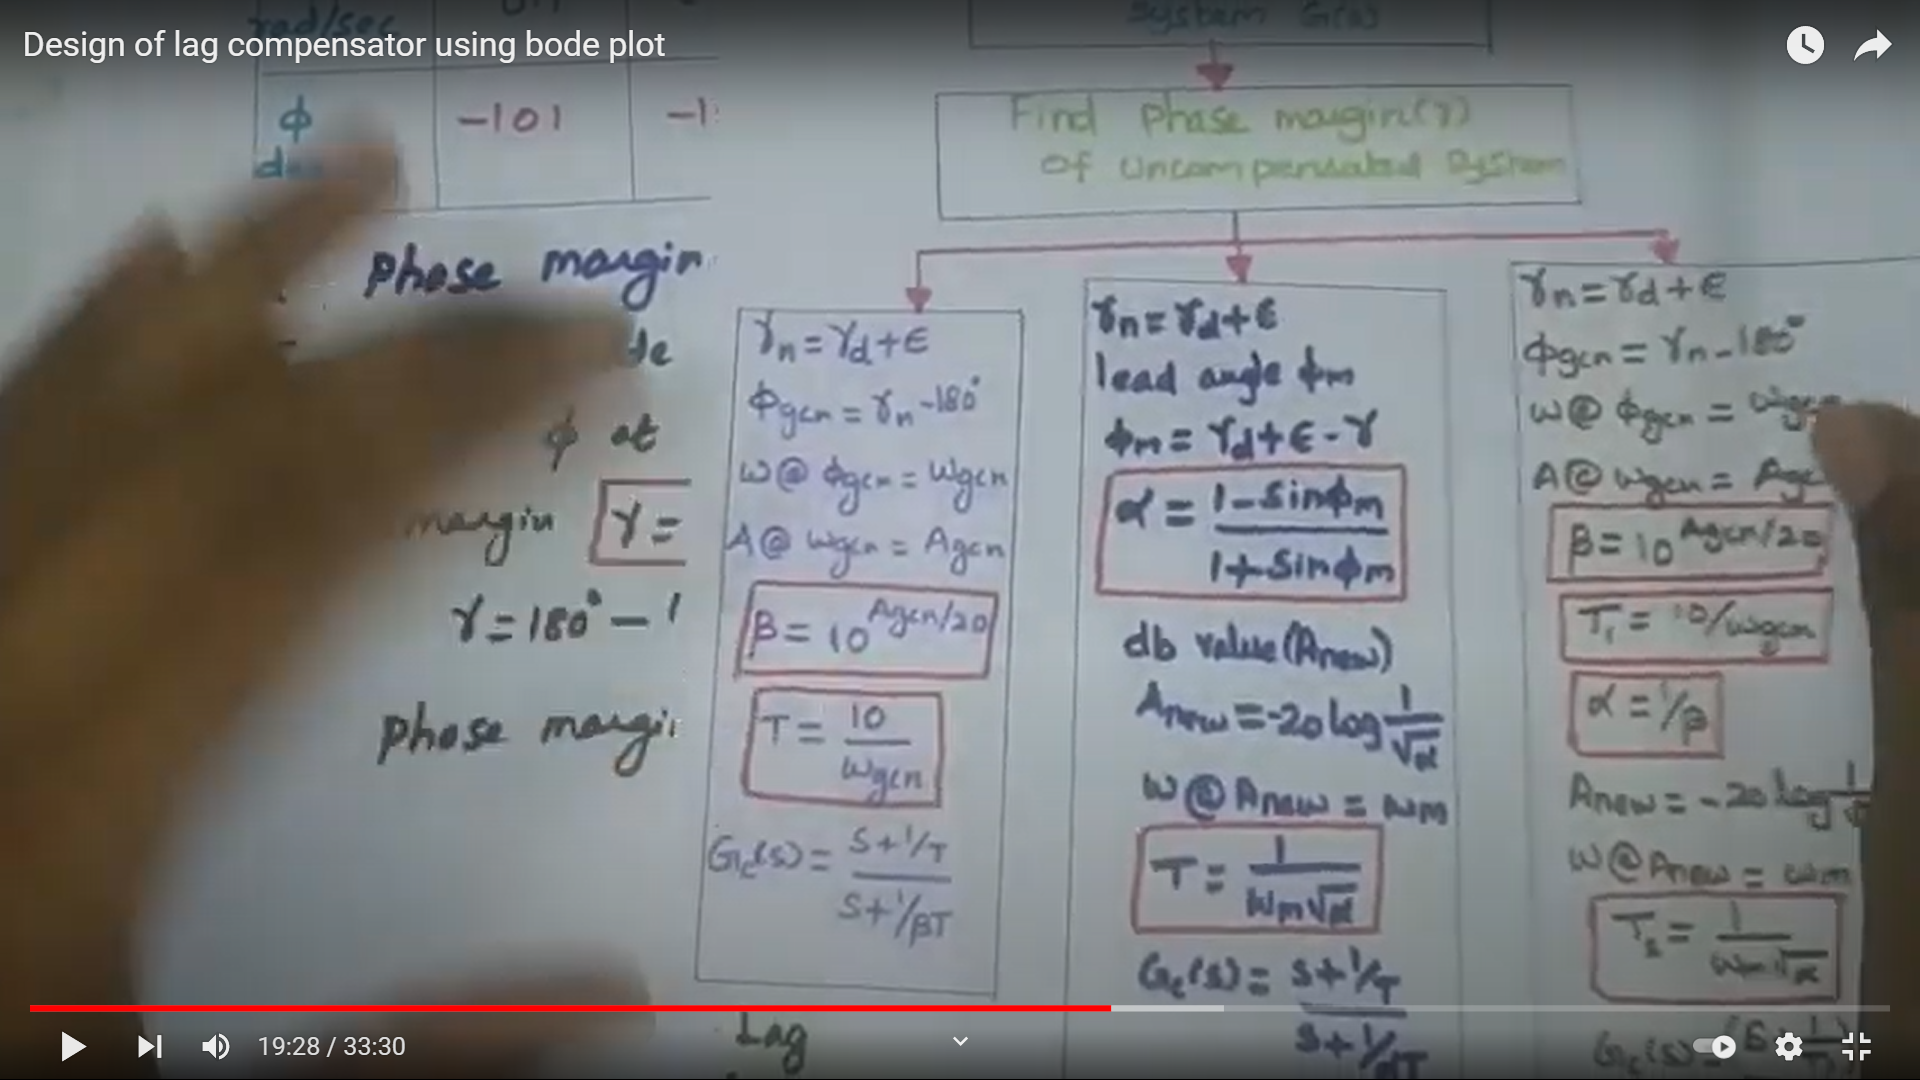 Design of lag compensator using bode plot
rad/sec
System G(s)
Find Phase margin(γ)
of uncompensated System
ϕ
-101
Phase margin
ϕ at
margin γ=
γ=180°-1
Phase
γn=γd+ϵ
ϕgcn=γn-180°
ω@ ϕgcn=ωgcn
A@ ωgcn=Agcn
β=10^Agcn/20
T=10/ωgcn
Gc(s)=S+1/T
S+1/βT
Lag
γn=γd+ϵ
lead angle ϕm
ϕm=γd+ϵ-γ
α=1-sinϕm
1+sinϕm
db value(Anew)
Anew=-20log 1/√α
ω@Anew=ωm
T=1/ωm√α
Gc(s)=S+1/T
S+1/αT
γn=γd+ϵ
ϕgcn=γn-180°
ω@ ϕgcn=
A@ ωgcn=
β=10^Agcn/20
T1=10/ωgcn
α=1/β
Anew=-20log
ω@Anew=ωm
T2=1/ωm√α
19:28 / 33:30